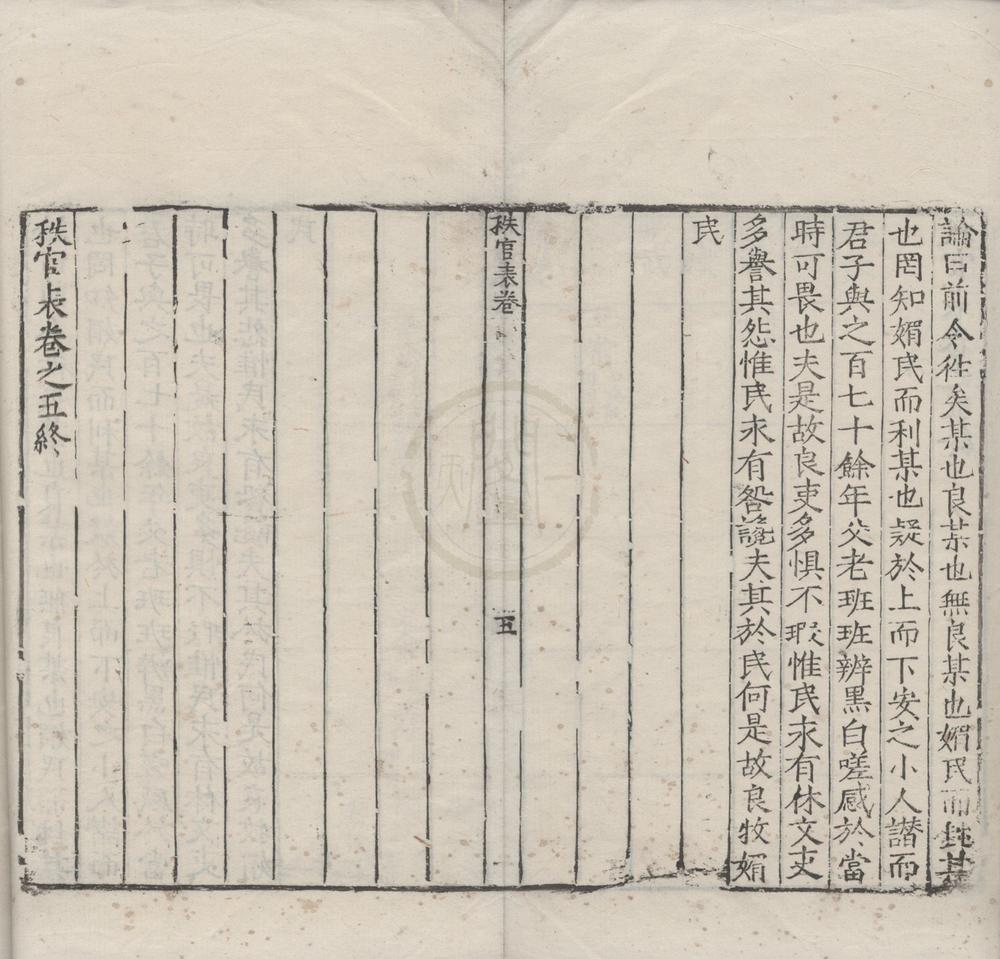 論曰前令徃矣某也良某也無良某也媚民而鈍某
也罔知媚民而利某也疑於上而下安之小人譖而
君子與之百七十餘年父老班班辨黑白嗟感於當
時可畏也夫是故良吏多惧不暇惟民求有休文吏
多譽其怨惟民求有咎讒夫其於民何是故良牧媚
民
秩官表卷
五
秩官表卷之五終